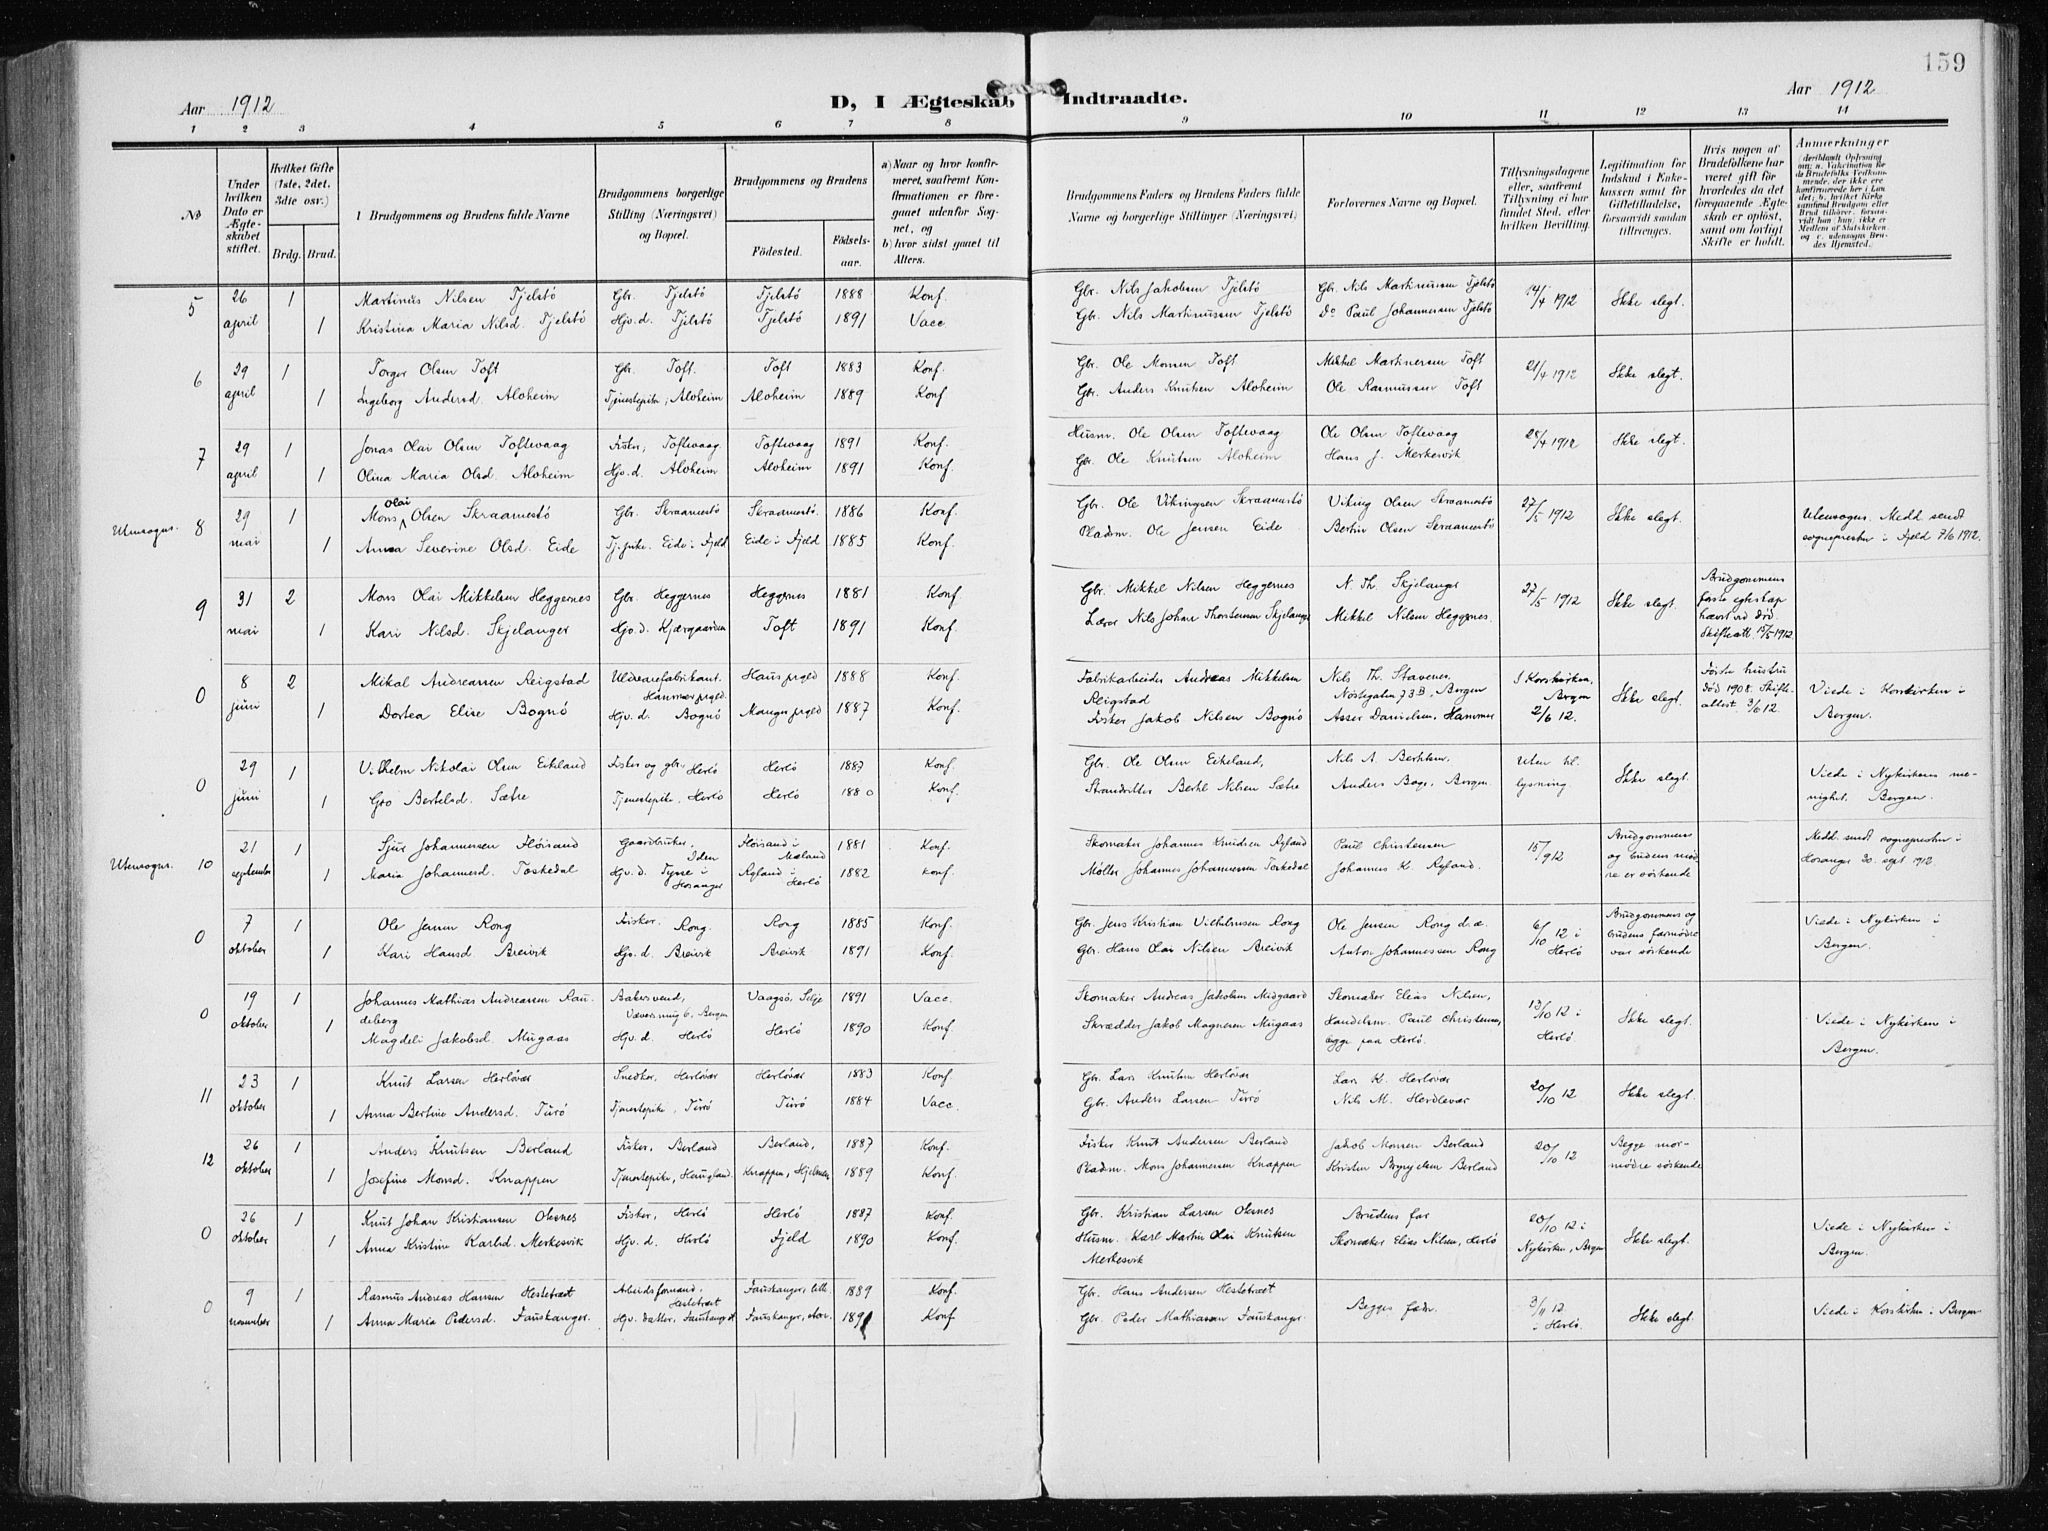 159
Aar 1912
D, I Ægteskab Indtraadte.
Aar 1912
1 2 3 4 5 6 7 8 9 10 11 12 13 14
No
Under hvilken Dato er Ægteskabet stiftet.
Hvilket Gifte (1ste, 2det, 3die osv.)
Brdg. Brud.
Brudgommens og Brudens fulde Navne
Brudgommens borgerlige Stilling (Næringsvei) og Bopæl.
Brudgommens og Brudens
Födested.
Födselsaar.
a) Naar og hvor konfirmeret, saafremt Konfirmationen er foregaaet udenfor Sognet, og
b) hvor sidst gaaet til Alters.
Brudgommens Faders og Brudens Faders fulde Navne og borgerlige Stillinger (Næringsvei).
Forlovernes Navne og Bopæl.
Tillysningsdagene eller, saafremt Tillysning ei har fundet Sted, efter hvilken Bevilling.
Legitimation for Indskud i Enkekassen samt for Giftetilladelse, forsaavidt saadan tiltrænges.
Hvis nogen af Brudefolkene har været gift før hvorledes da det foregaaende Ægteskab er opløst, samt om lovligt Skifte er holdt.
Anmærkninger
5 26 april 1 Martinus Nilsen Tjelstö Gbr. Tjelstö Tjelstö 1888 Konf. Gbr. Nils Jakobsen Tjelstö Gbr. Nils Martinussen Tjelstö 14/4 1912 Ikke slegt.
1 Kristina Maria Nilsd. Tjelstö Hjv. d. Tjelstö Tjelstö 1891 Vacc. Gbr. Nils Martinussen Tjelstö Do Paul Johannessen Tjelstö
6 29 april 1 Torger Olsen Toft Gbr. Toft. Toft 1883 Konf. Gbr. Ole Monsen Toft Mikkel Martinessen Toft 21/4 1912 Ikke slegt.
1 Ingeborg Andersd. Aloheim Tjenestepike, Aloheim Aloheim 1889 Konf. Gbr. Anders Knutsen Aloheim Ole Rasmussen Toft
7 29 april 1 Jonas Olai Olsen Toftevaag Fisker, Toftevaag Toftevaag 1891 Konf. Husm. Ole Olsen Toftevaag Ole Olsen Toftevaag 28/4 1912 Ikke slegt.
1 Olina Maria Olsd. Aloheim Hjv. d. Aloheim Aloheim 1891 Konf. Gbr. Ole Knutsen Aloheim Hans J. Merkesvik
Utensogns. 8 29 mai 1 Mons Olai Olsen Skraamestö Gbr. Skraamestö Skraamestö. 1886 Konf. Gbr. Ole Vikingsen Skraamestö Viking Olsen Skraamestö 27/5 1912 Ikke slegt. Utensogns. Medd. sendt
1 Anna Severine Olsd. Eide Tj. pike. Eide i Fjeld Eide i Fjeld 1885 Konf. Pladsm. Ole Jensen Eide Bertin Olsen Skraamestö sogneprestn i Fjeld 7/6 1912.
9 31 mai 2 Mons Olai Mikkelsen Heggernes Gbr. Heggernes Heggernes 1881 Konf. Gbr. Mikkel Nilsen Heggernes N. Th. Skjelanger 27/5 1912 Ikke slegt. Brudgommens første egteskap hævet ved död. Skifteatt. 15/5 1912.
1 Kari Nilsd. Skjelanger Hjv. d. Kjærgaarden Toft 1891 Konf. Lærer Nils Johan Thorstensen Skjelanger Mikkel Nilsen Heggernes.
0 8 juni 2 Mikal Andreassen Reigstad Uldvarefabrikant. Hammer prgld. Haus prgld 1888 Konf. Fabrikarbeider Andreas Mikkelsen Reigstad Nils Th. Stavenes, Nöstegaten 73B, Bergen I Korskirken, Bergen 2/6 12. Ikke slegt. Förste hustru död 1908. Skifteattest. 3/6 12. Viede i Korskirken i Bergen.
1 Dortea Elise Bognö Hjv. d. Bognö Manger prgld 1887 Konf. Fisker Jakob Nilsen Bognö Asser Danielsen, Hammer
0 29 juni 1 Vilhelm Nikolai Olsen Eikeland Fisker og gbr. Herlö Herlö 1887 Konf. Gbr. Ole Olsen Eikeland, Nils A. Berthlsen, Uten tillysning Ikke slegt. Viede i Nykirkens menighet. Bergen.
1 Gro Bertelsd. Sætre Tjenestepike, Herlö Herlö 1880 Konf. Strandsitter Berthl Nilsen Sætre Anders Boge, Bergen.
Utensogns. 10 21 september 1 Sjur Johannessen Flöisand Gaardbruker, Flöisand i Mæland 1881 Konf. Skomaker Johannes Knudsen Ryland Paul Christensen 15/9 12 Brudgommens og brudens mödre er söskende Medd. sendt sognepresten i Hosanger 20. sept 1912.
1 Maria Johannesd. Toskedal Hjv. d. Tysse i Hosanger Ryland i Herlö 1882 Konf. Møller Johannes Johannessen Toskedal Johannes K. Ryland.
0 7 oktober 1 Ole Jensen Rong Fisker. Rong. Rong 1885 Konf. Gbr. Jens Kristian Vilhelmsen Rong Ole Jensen Rong d. æ. 6/10 12 i Herlö Brudgommens og brudens farmödre var söskende Viede i Nykirken i Bergen.
1 Kari Hansd. Breivik Hjv. d. Breivik Breivik 1891 Konf. Gbr. Hans Olai Nilsen Breivik Anton Johannessen Rong
0 19 oktober 1 Johannes Mathias Andreassen Raudeberg Bakersvend, Væversmug 6, Bergen Vaagsö, Selje 1891 Vacc. Skomaker Andreas Jakobsen Midgaard Skomaker Elias Nilsen, 13/10 12 i Herlö Ikke slegt. Viede i Nykirken i Bergen.
1 Magdeli Jakobsd. Mugaas Hjv. d. Herlö Herlö 1890 Konf. Skrædder Jakob Magnesen Mugaas Handelsm. Paul Christensen, begge paa Herlö.
11 23 oktober 1 Knut Larsen Herlövær Snedker, Herlövær Herlövær 1883 Konf Gbr. Lars Knutsen Herlövær Lars K. Herlövær 20/10 12 Ikke slegt.
1 Anna Bertine Andersd. Turö Tjenestepike, Turö Turö 1884 Vacc. Gbr. Anders Larsen Turö Nils M. Herdlevær
12 26 oktober 1 Anders Knutsen Berland Fisker, Berland Berland, 1887 Konf. Fisker Knut Andersen Berland Jakob Monsen Berland 20/10 12 Begge mormödre söskende
1 Josefine Monsd. Knappen Tjenestepike, Haugland. Knappen, Hjelmen 1889 Konf. Pladsm. Mons Johannessen Knappen Kristen Brynjelsen Berland
0 26 oktober 1 Knut Johan Kristiansen Oksnes Fisker, Herlö Herlö 1887 Konf. Gbr. Kristian Larsen Oksnes Brudens far 20/10 12 i Nykirken, Bergen Ikke slegt. Viede i Nykirken i Bergen.
1 Anna Kristine Karlsd. Merkesvik Hjv. d. Herlö Fjeld 1890 Konf. Husm. Karl Martin Olai Knutsen Merkesvik Skomaker Elias Nilsen, Herlö
0 9 november 1 Rasmus Andreas Hansen Hestetræt Arbeidsformand, Hestetræt Fauskanger, lille 1889 Konf. Gbr. Hans Andersen Hestetræt Begges fædr. 3/11 12 i Herlö. Ikke slegt. Viede i Korskirken i Bergen
1 Anna Maria Pedersd. Fauskanger. Hjv. datter, Fauskanger st Fauskanger, store. 1891 Konf Gbr. Peder Mathiassen Fauskanger.